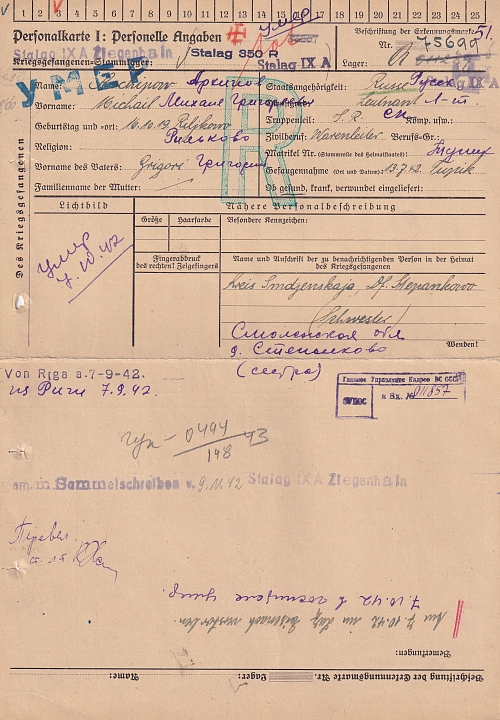 1 2 3 4 5 6 7 8 9 10 11 12 13 14 15 16 17 18 19 20 21 22 23 24 25
Personalkarte I: Personelle Angaben
умер
Beschriftung der Erkennungsmarke
51.
Stalag IX A Ziegenhain
Stalag 350 R
Nr. 75699
Kriegsgefangenen-Stammlager:
Stalag IX A
Lager:
УМЕР
Des Kriegsgefangenen
Name:
Архипов
Staatsangehörigkeit: Russe Русск
Vorname: Michail Михаил Григорьевич
Leutnant Л-т
Truppenteil: S.R. Komp. usw.:
Geburtstag und -ort: 16.10.19 Рильково
Zivilberuf: Warenleiter Berufs-Gr.:
Religion:
Matrikel Nr. (Stammrolle des Heimatstaates):
Vorname des Vaters: Grigori Григорий
Gefangennahme (Ort und Datum): 13.7.42
Familienname der Mutter:
Ob gesund, krank, verwundet eingeliefert:
R
Lichtbild
Nähere Personalbeschreibung
Größe
Haarfarbe
Besondere Kennzeichen:
умер
7.10.42
Fingerabdruck
des rechten! Zeigefingers
Name und Anschrift der zu benachrichtigenden Person in der Heimat
des Kriegsgefangenen
Kreis Smoljenskaja, Df. Stepankowo
(Schwester)
Смоленская обл
д. Степаньково
(сестра)
Wenden!
Von Riga a. 7-9-42.
из Риги 7.9.42.
Главное Управление Кадров ВС СССР
в Вх. № 011857
0494
148
43
m. Sammelschreiben v. 9.11.42 Stalag IX A Ziegenhain
Перевел
7.10.42 в госпитале умер.
Am 7.10.42 im Laz. Eisenach verstorben.
Bemerkungen:
Name:
Lager:
Beschriftung der Erkennungsmarke Nr.